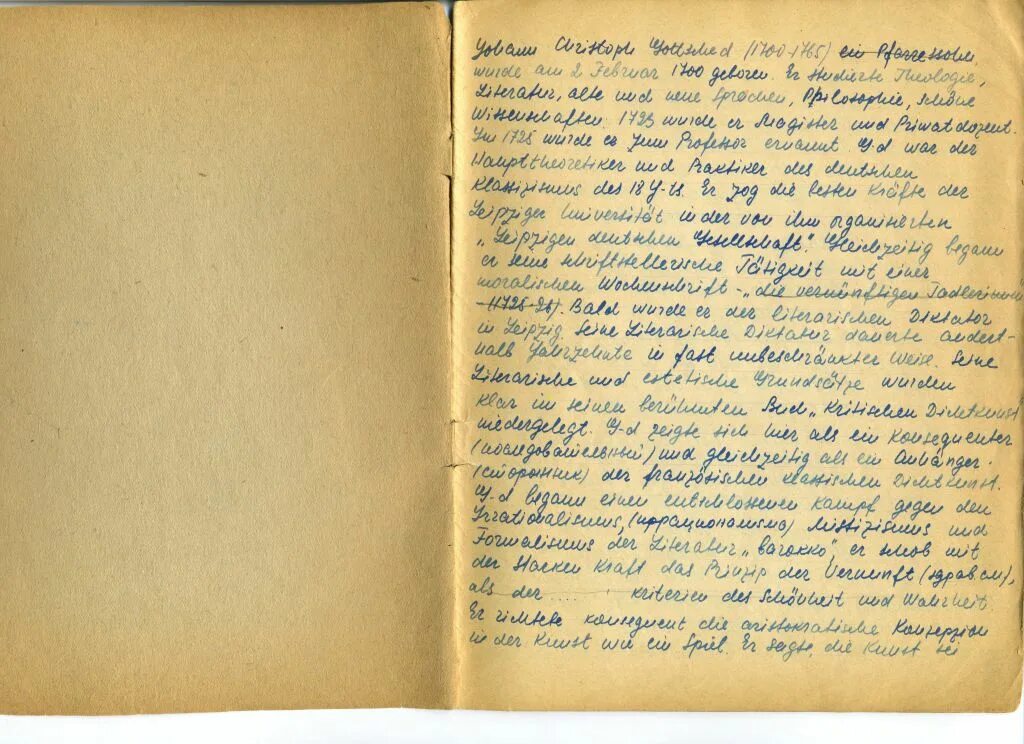 Johann Christoph Gottsched (1700-1765) ein Pfarressohn,
wurde am 2 Februar 1700 geboren. Er studierte Theologie,
Literatur, alte und neue Sprachen, Philosophie, schöne
Wissenschaften. 1723 wurde er Magister und Privatdozent.
Im 1725 wurde er zum Professor ernannt. G-d war der
Haupttheoretiker und Praktiker des deutschen
Klassizismus des 18 J-ts. Er zog die besten Kräfte der
Leipziger Universität in der von ihm organisierten
„Leipzigen deutschen Gesellschaft". Gleichzeitig begann
er seine schriftstellerische Tätigkeit mit einer
moralischen Wochenschrift - „die vernünftigen Tadlerinnen"
(1725-26). Bald wurde er der literarischen Diktator
in Leipzig. Seine Literarische Diktatur dauerte andert-
halb Jahrzehnte in fast unbeschränkter Weise. Seine
Literarische und estetische Grundsätze wurden
klar in seinen berühmten Buch „Kritischen Dichtkunst
niedergelegt. G-d zeigte sich hier als ein Konsequenter
(последовательный) und gleichzeitig als ein Anhänger
(сторонник) der französischen klassischen Dichtkunst.
G-d begann einen entschlossenen Kampf gegen den
Irrationalismus, (иррационализма) Mistizismus und
Formalismus der Literatur „barokko", er schob mit
der Starken Kraft das Prinzip der Vernunft (здрав см),
als der .... kriterien des Schönheit und Wahrheit.
Er richtete konsequent die aristokratische Konsepzion
in der Kunst wie ein Spiel. Er sagte, die Kunst sei